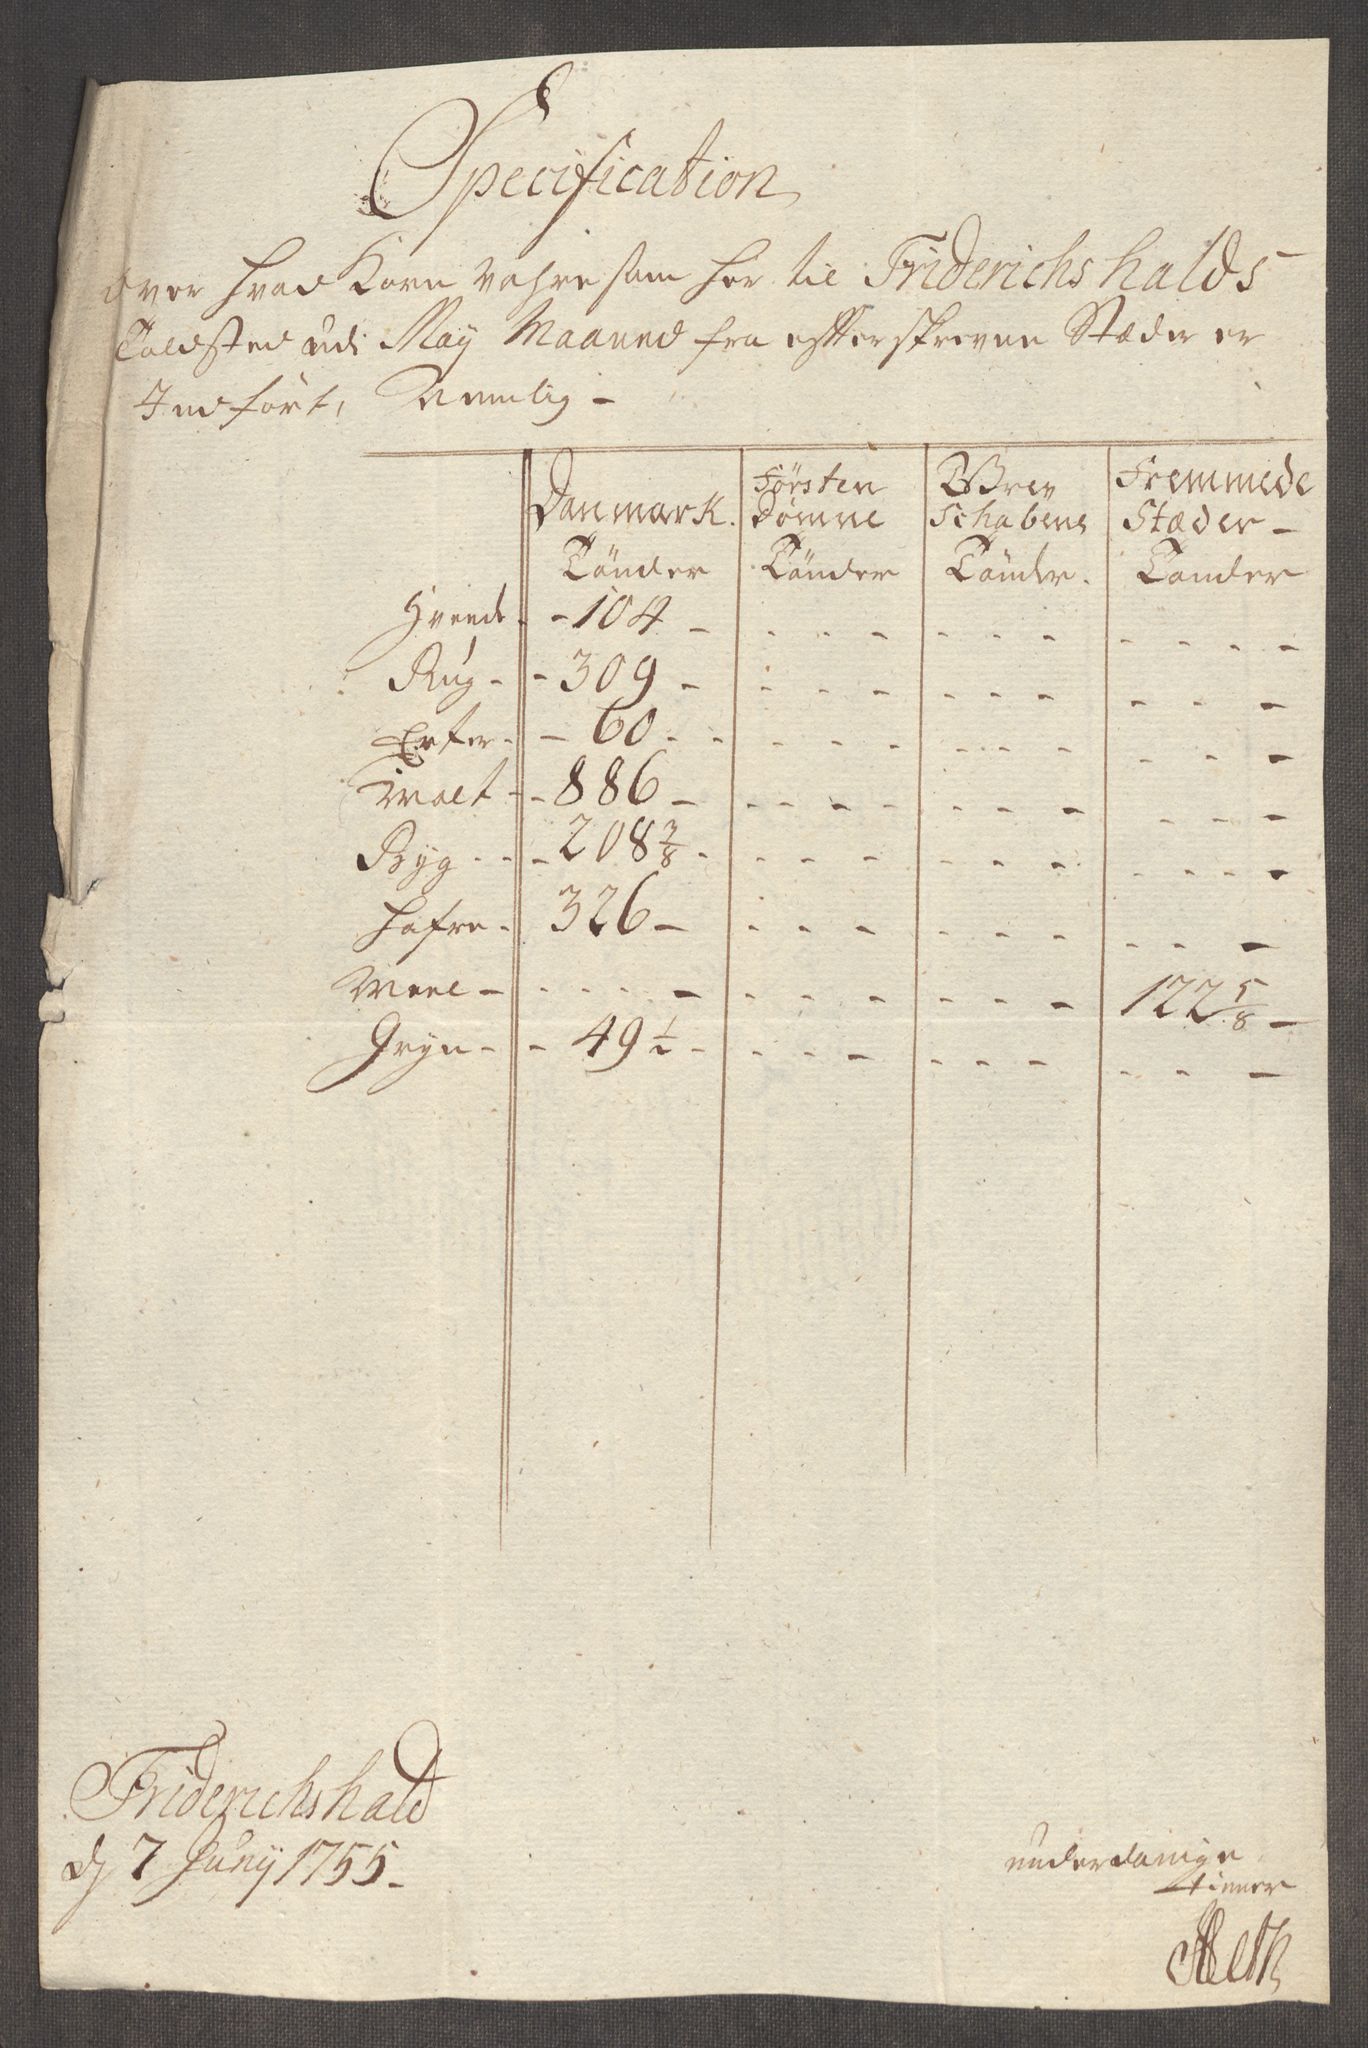 Specification
over hvad Korn vahre som her til Friderichshalds
Toldsted udi May Maaned fra efterskrevne Stæder er
Indført, Nemlig -
Danmark. Førsten Dømme Grev Schabene Fremmede Stæder -
Tönder Tönder Tönder. Tönder
Hvede - - 104 -
Rug - - 309 -
Erter - - 60 - -
Malt - - 886 -
Byg - - - 208 3/8 -
Hafre - 326 -
Meel - 122 5/8 -
Gryn - - 49 1/2 -
Friderichshald
d 7 Juny 1755 -
underdanige
tiener